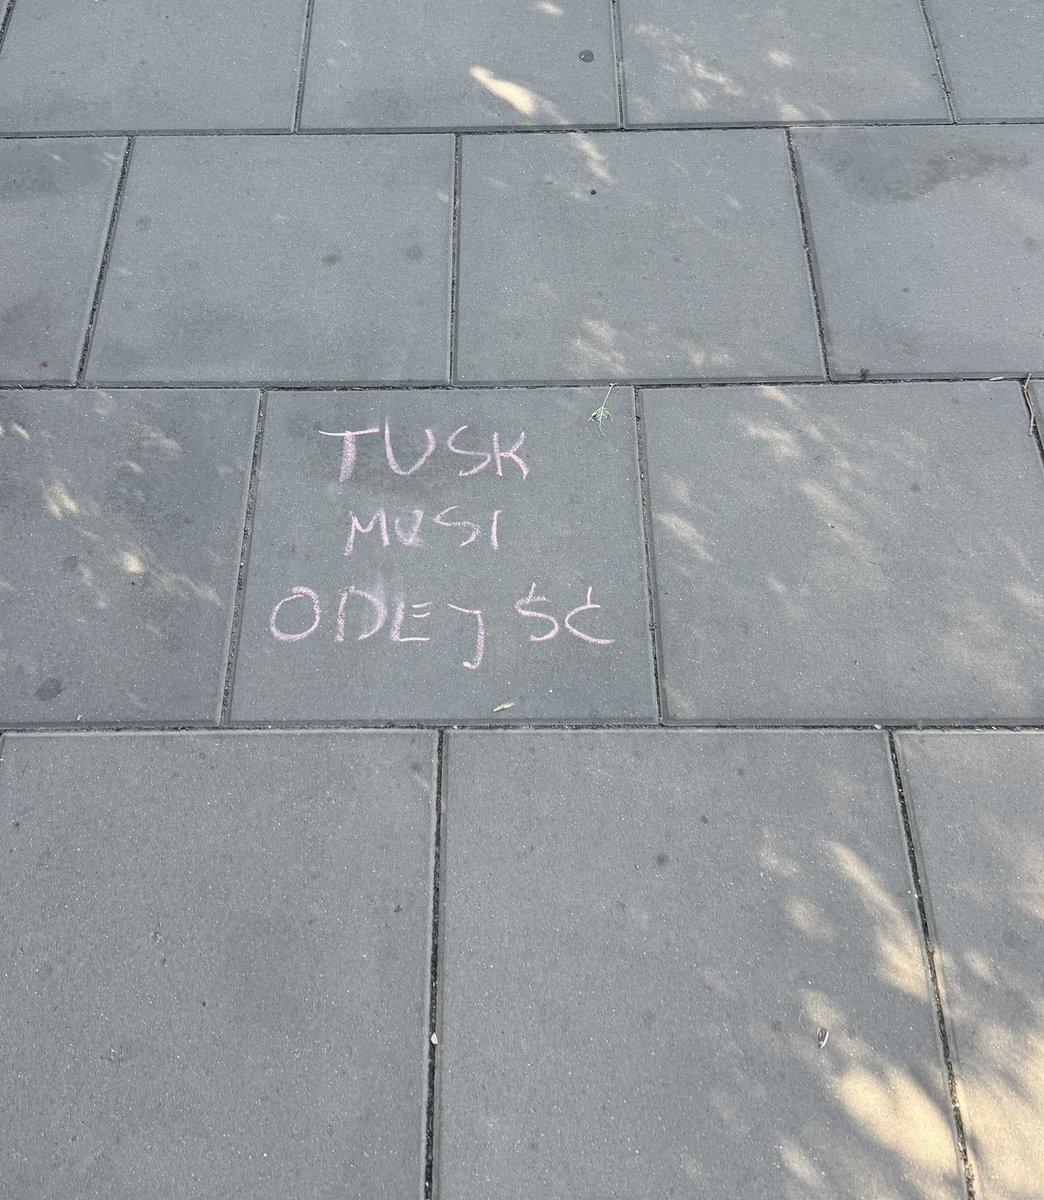 TUSK
MUSI
ODEJŚĆ